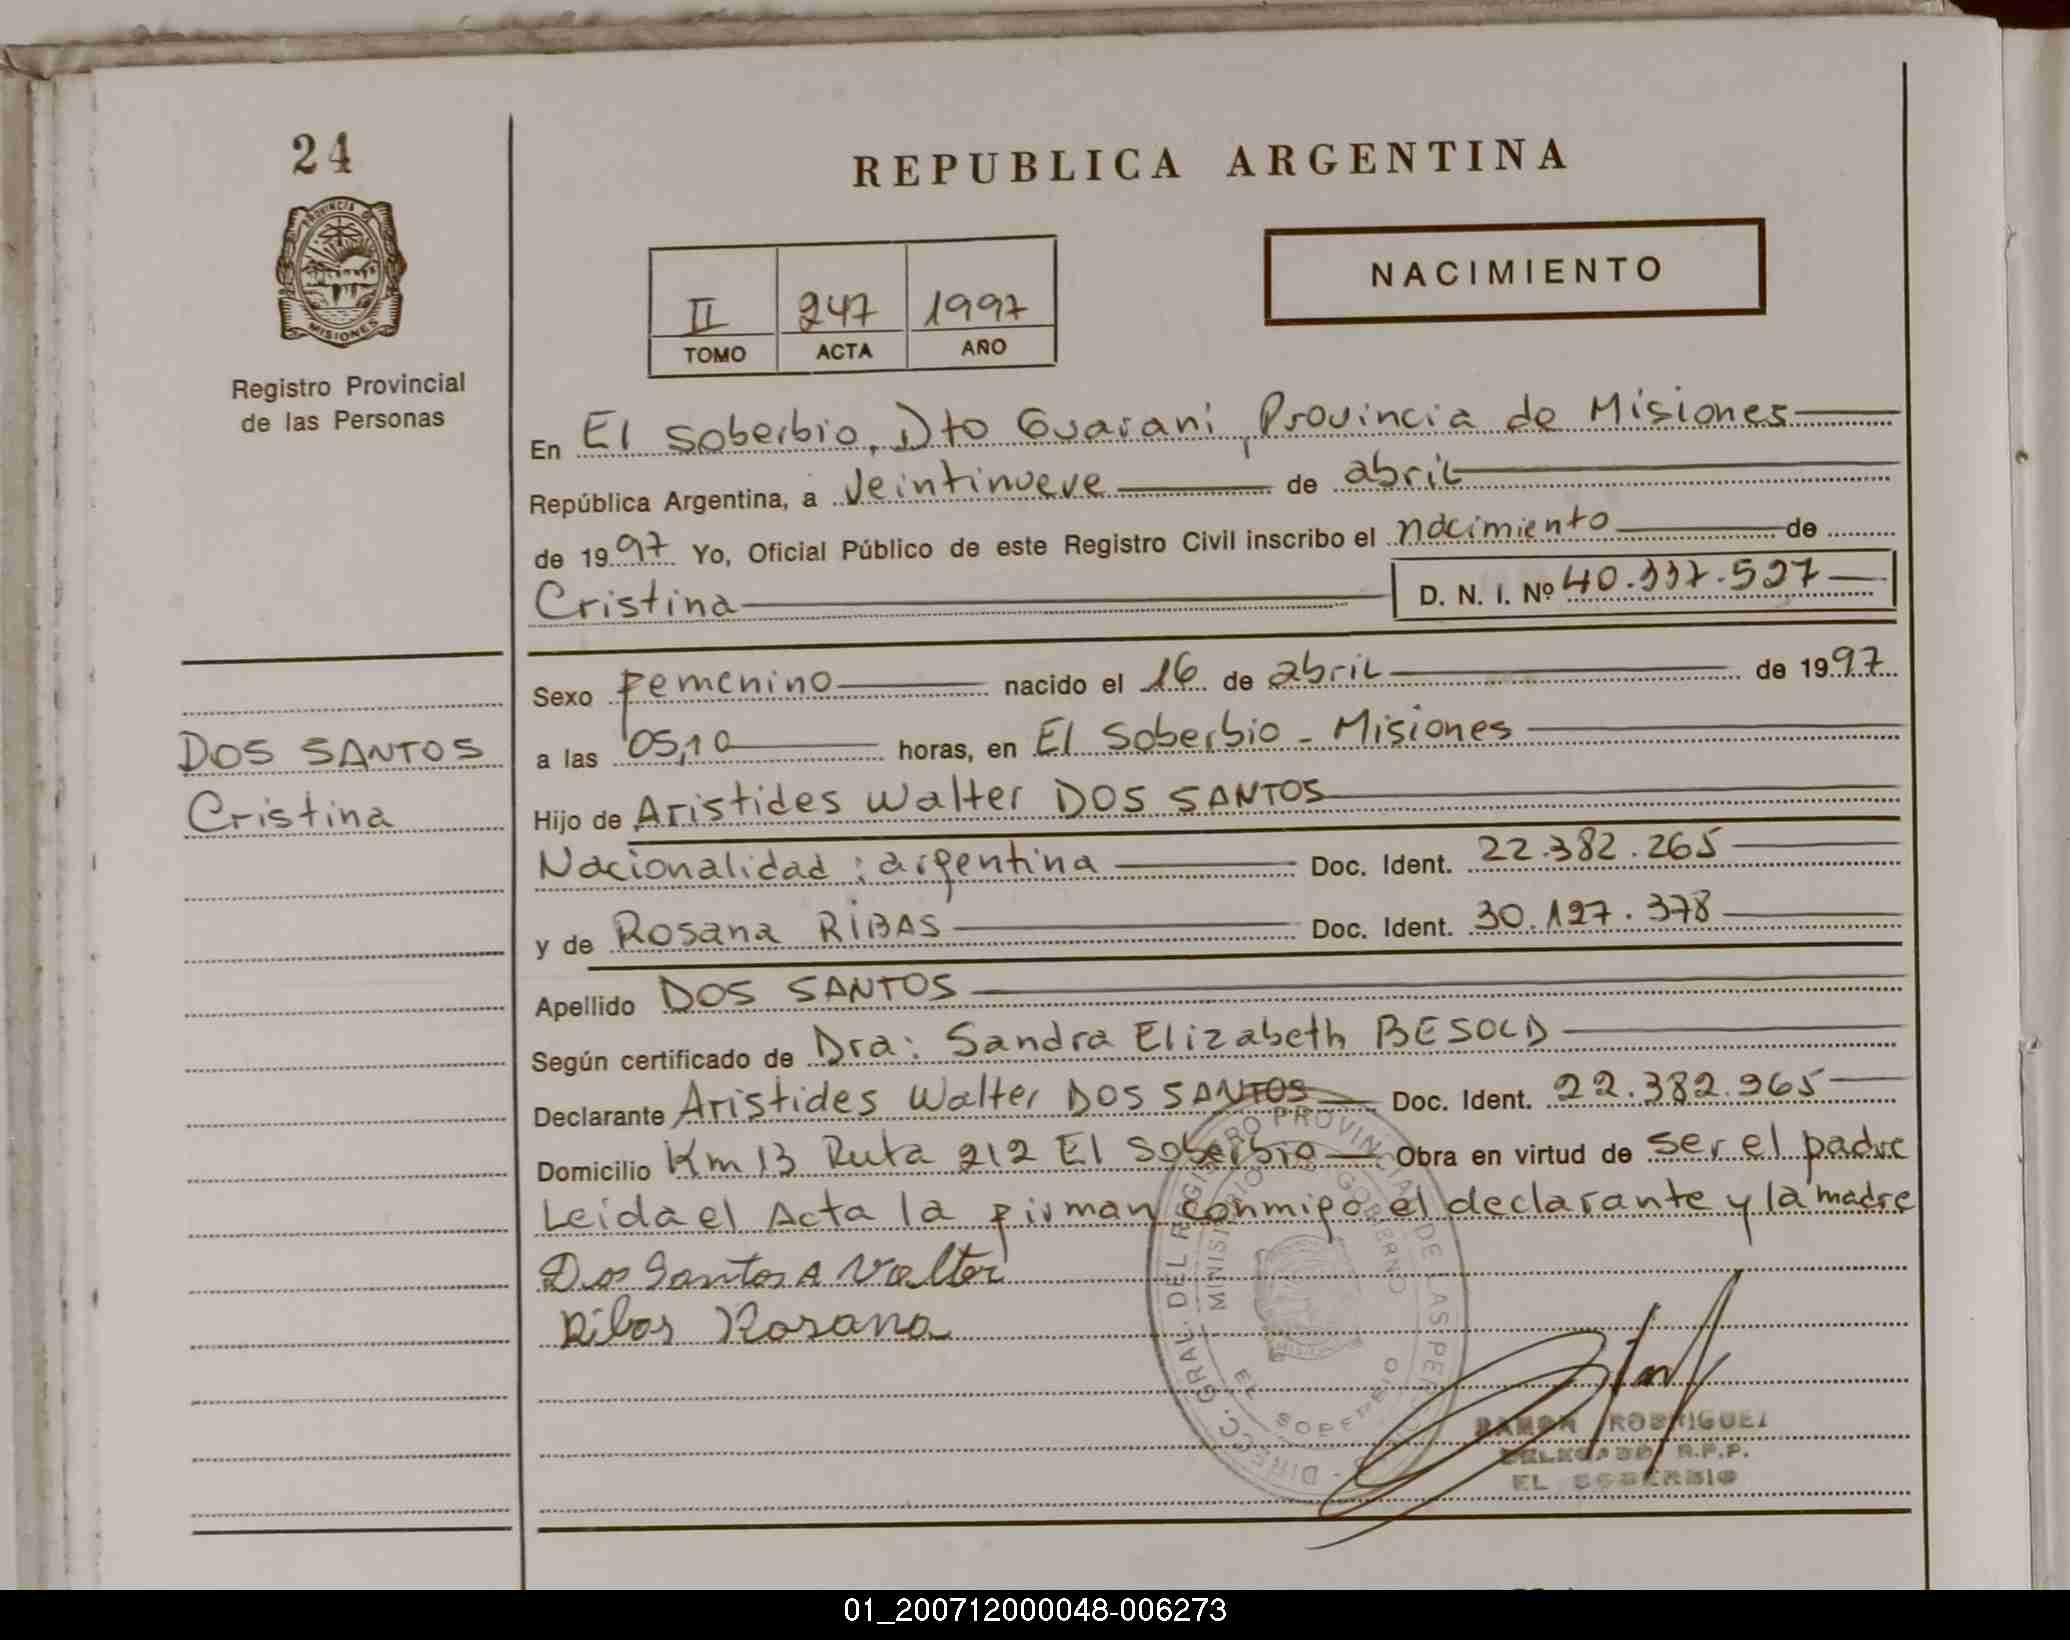 24
REPUBLICA ARGENTINA
PROVINCIA DE
MISIONES
Registro Provincial
de las Personas
NACIMIENTO
II 247 1997
TOMO ACTA AÑO
En El Soberbio, Dto Guarani, Provincia de Misiones
República Argentina, a Veintinueve de abril
de 1997 Yo, Oficial Público de este Registro Civil inscribo el nacimiento de
Cristina D. N. I. Nº 40.337.527
Sexo Femenino nacido el 16 de abril de 1997
a las 05,10 horas, en El Soberbio - Misiones
DOS SANTOS
Cristina
Hijo de Aristides Walter DOS SANTOS
Nacionalidad: argentina Doc. Ident. 22.382.265
y de Rosana RIBAS Doc. Ident. 30.127.378
Apellido DOS SANTOS
Según certificado de Dra: Sandra Elizabeth BESOLD
Declarante Aristides Walter DOS SANTOS Doc. Ident. 22.382.965
Domicilio Km 13 Ruta 212 El Soberbio Obra en virtud de ser el padre
Leida el Acta la firman conmigo el declarante y la madre
Dos Santos A Walter
Ribas Rosana
DIRECC. GRAL. DEL REGISTRO PROVINCIAL DE LAS PERSONAS
MINISTERIO DE GOBIERNO
EL SOBERBIO
RAMON RODRIGUEZ
DELEGADO R.P.P.
EL SOBERBIO
01_200712000048-006273